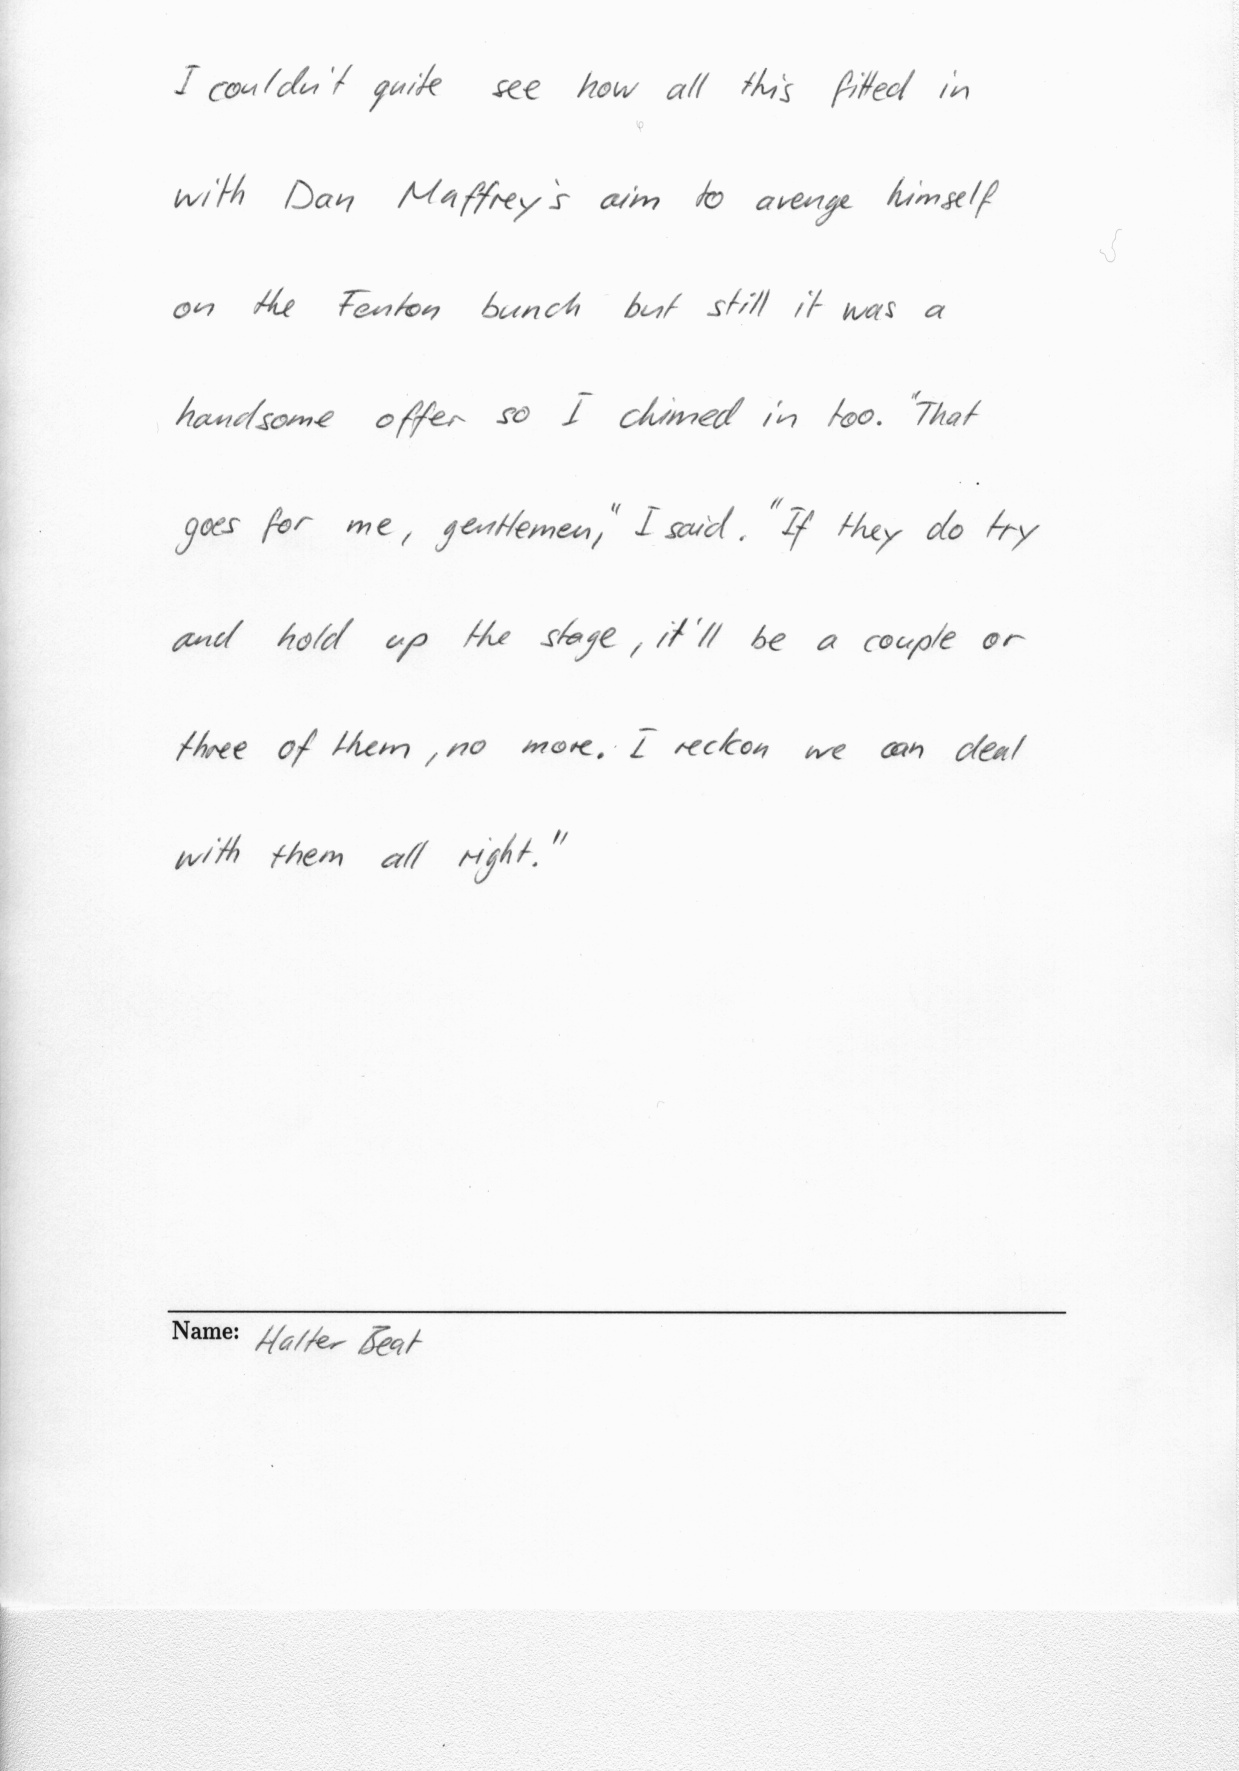 I couldn't quite see how all this fitted in
with Dan Maffrey's aim to avenge himself
on the Fenton bunch but still it was a
handsome offer so I chimed in too. "That
goes for me, gentlemen," I said. "If they do try
and hold up the stage, it'll be a couple or
three of them, no more. I reckon we can deal
with them all right."
Name: Halter Beat